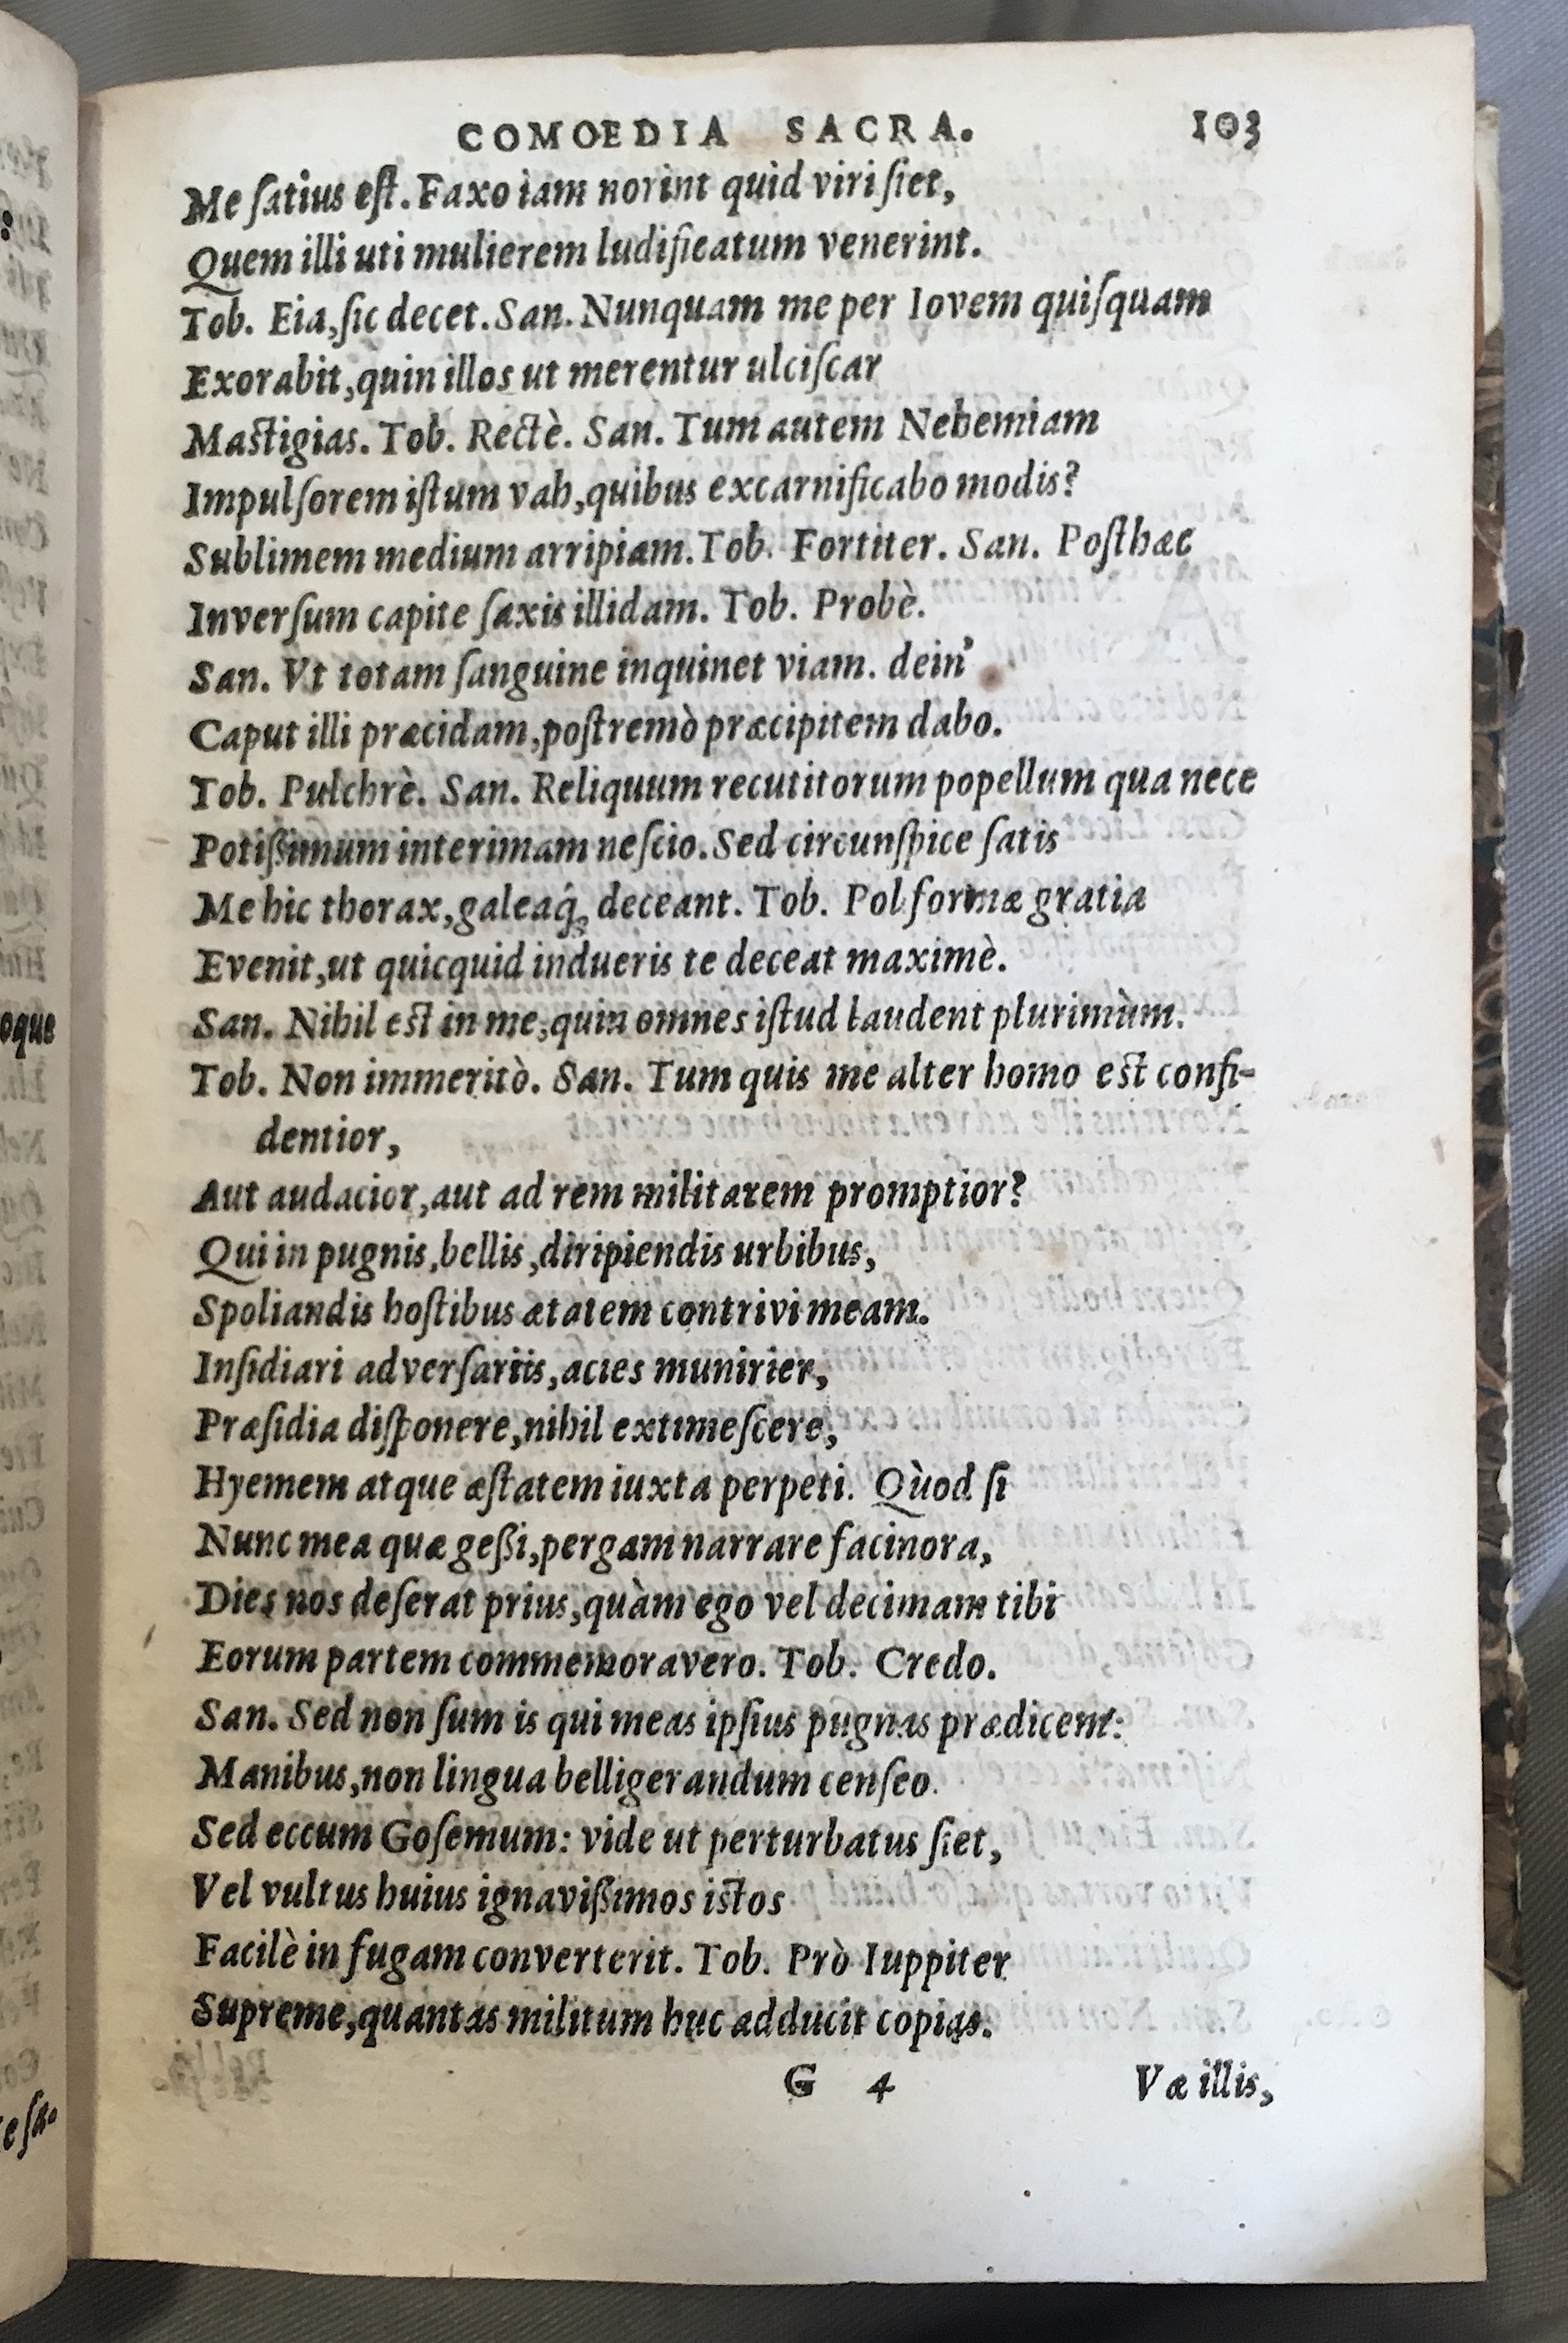 COMOEDIA SACRA. 103
Me ſatius eſt. Faxo iam norint quid viri ſiet,
Quem illi uti mulierem ludificatum venerint.
Tob. Eia, ſic decet. San. Nunquam me per Iovem quiſquam
Exorabit, quin illos ut merentur ulciſcar
Maſtigias. Tob. Rectè. San. Tum autem Nehemiam
Impulſorem iſtum vah, quibus excarnificabo modis?
Sublimem medium arripiam. Tob. Fortiter. San. Poſthæc
Inverſum capite ſaxis illidam. Tob. Probè.
San. Vt totam ſanguine inquinet viam. dein'
Caput illi præcidam, poſtremò præcipitem dabo.
Tob. Pulchrè. San. Reliquum recutitorum popellum qua nece
Potißimum interimam neſcio. Sed circunſpice ſatis
Me hic thorax, galeaq́; deceant. Tob. Pol formæ gratia
Evenit, ut quicquid indueris te deceat maximè.
San. Nihil eſt in me, quin omnes iſtud laudent plurimùm.
Tob. Non immeritò. San. Tum quis me alter homo eſt confi-
dentior,
Aut audacior, aut ad rem militarem promptior?
Qui in pugnis, bellis, diripiendis urbibus,
Spoliandis hoſtibus ætatem contrivi meam.
Inſidiari adverſariis, acies munirier,
Præſidia diſponere, nihil extimeſcere,
Hyemem atque æſtatem iuxta perpeti. Quòd ſi
Nunc mea quæ geßi, pergam narrare facinora,
Dies nos deſerat prius, quàm ego vel decimam tibi
Eorum partem commemoravero. Tob. Credo.
San. Sed non ſum is qui meas ipſius pugnas prædicem:
Manibus, non lingua belligerandum cenſeo.
Sed eccum Goſemum: vide ut perturbatus ſiet,
Vel vultus huius ignavißimos iſtos
Facilè in fugam converterit. Tob. Prò Iuppiter
Supreme, quantas militum huc adducit copias.
G 4 Væ illis,